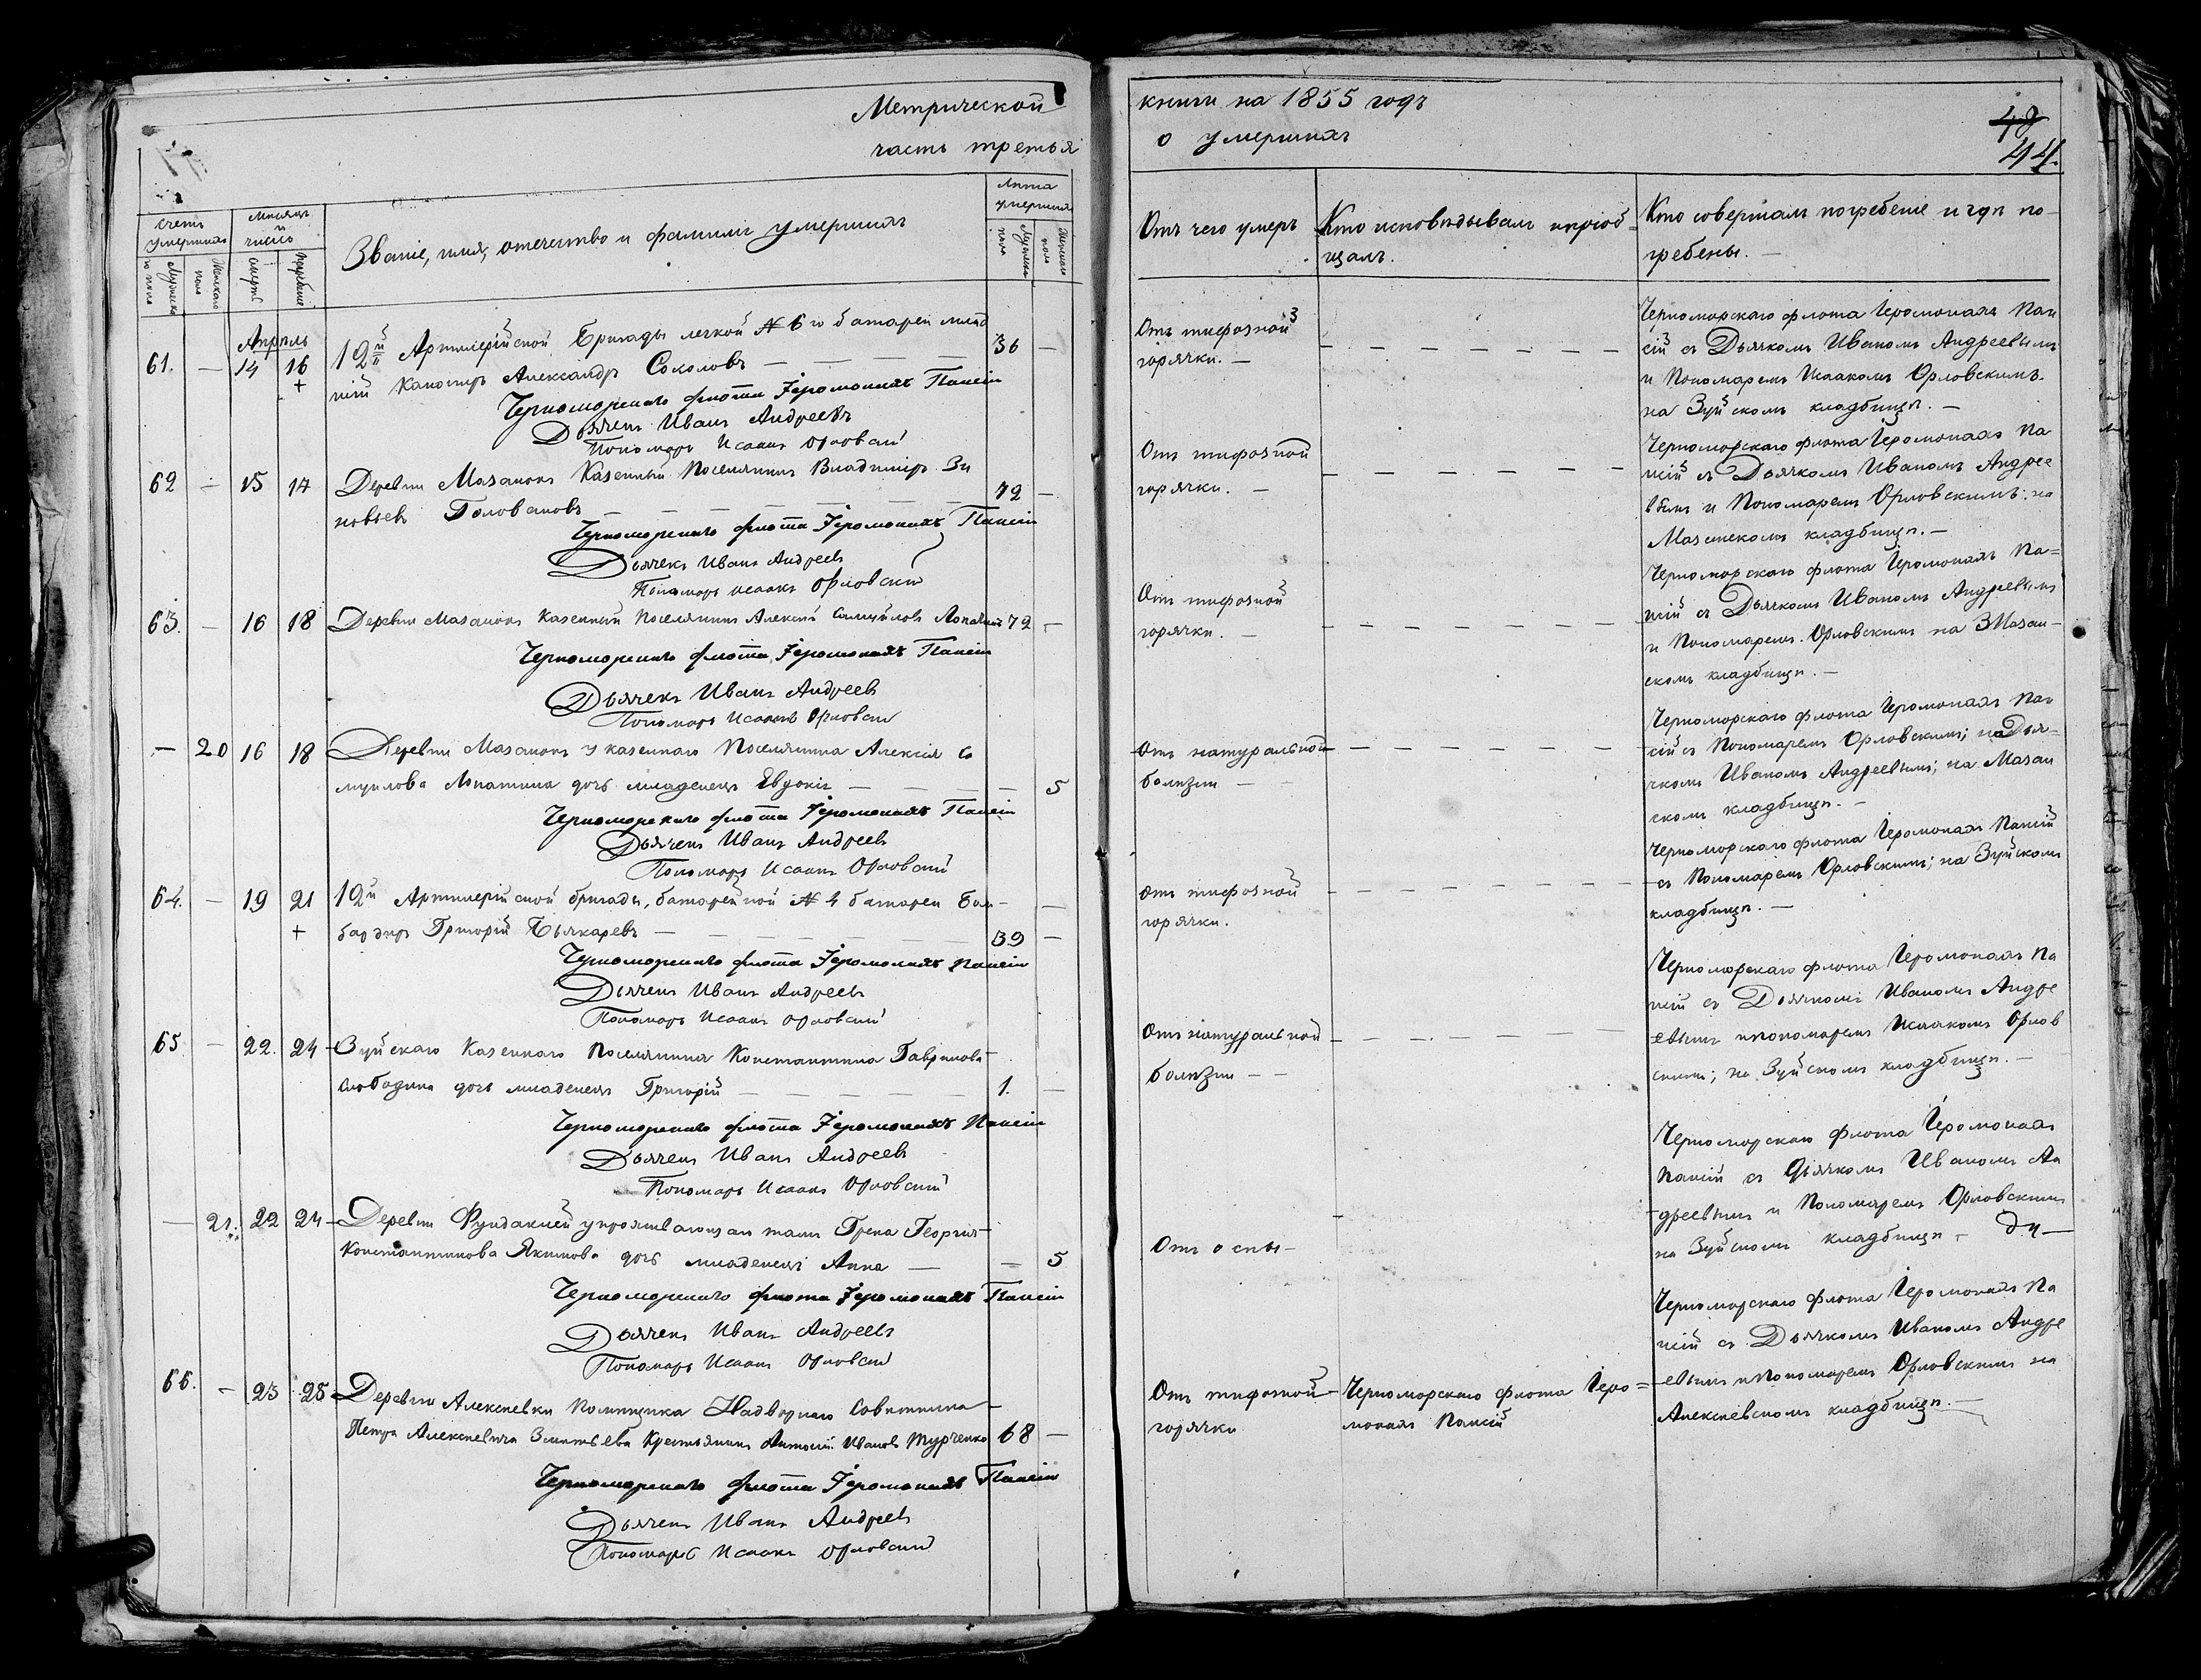 Метрической
часть третья
книги на 1855 годъ
о умершихъ
49
44.
Счетъ умершихъ
Мужеска го пола
Женскаго пола
Мѣсяцъ и число
смерти
погребенія
Званіе, имя, отечество и фамилія умершихъ
Лѣта умершихъ
Мужеска пола
Женскаго пола
Отъ чего умеръ
Кто исповѣдывалъ и пріоб-
щалъ.
Кто совершалъ погребеніе и гдѣ по-
гребены. —
Апрѣль
61. — 14 16 12й Артиллерійской Бригады легкой № 6го батареи млад 36 —
+ шій Канониръ Александръ Соколовъ — — —
Черноморскаго флота Іеромонахъ Паисій
Дьячекъ Иванъ Андреевъ
Пономарь Исаакъ Орловскій
Отъ тифозной
горячки. —
Черноморскаго флота Іеромонахъ Паи
сій съ Дьячкомъ Иваномъ Андреевымъ
и Пономаремъ Исаакомъ Орловскимъ.
на Зуйскомъ кладбищѣ. —
62 — 15 17 Деревни Мазанокъ Казенный Поселянинъ Владиміръ Зи
новьевъ Головановъ — — — — 72 —
Черноморскаго флота Іеромонахъ Паисій
Дьячекъ Иванъ Андреевъ
Пономарь Исаакъ Орловскій
Отъ тифозной
горячки. —
Черноморскаго флота Іеромонахъ Па
исій съ Дьячкомъ Иваномъ Андрее
вымъ и Пономаремъ Орловскимъ: на
Мазанскомъ кладбищѣ. —
63. — 16 18 Деревни Мазанокъ Казенный Поселянинъ Алексѣй Самуйловъ Лопатинъ 72 —
Черноморскаго флота Іеромонахъ Паисій
Дьячекъ Иванъ Андреевъ
Пономарь Исаакъ Орловскій
Отъ тифозной
горячки. —
Черноморскаго флота Іеромонахъ Па=
исій съ Дьячкомъ Иваномъ Андреевымъ
и Пономаремъ. Орловскимъ на Мазан-
скомъ кладбищѣ. —
— 20 16 18 Деревни Мазанокъ у казеннаго Поселянина Алексія Са
муилова Лопатина дочь младенецъ Евдокія — — — 5
Черноморскаго флота Іеромонахъ Паисій
Дьячекъ Иванъ Андреевъ
Пономарь Исаакъ Орловскій
Отъ натуральной
болѣзни — —
Черноморскаго флота Іеромонахъ Паи
сій съ Пономаремъ Орловскимъ; на Дья-
чкомъ Иваномъ Андреевымъ; на Мазан
скомъ кладбищѣ. —
64. — 19 21 12й Артилерійской бригады, батарейной № 4 батареи Бом-
+ бардиръ Григорій — — — 39 —
Черноморскаго флота Іеромонахъ Паисій
Дьячекъ Иванъ Андреевъ
Пономарь Исаакъ Орловскій
Отъ тифозной
горячки.
Черноморскаго флота Іеромонахъ Паисій
съ Пономаремъ Орловскимъ; на Зуйскомъ
кладбищѣ. —
65 — 22. 24 Зуйскаго Казеннаго Поселянина Константина Гаврилова
Слободина дочь младенецъ Григорій — — — 1. —
Черноморскаго флота Іеромонахъ Паисій
Дьячекъ Иванъ Андреевъ
Пономарь Исаакъ Орловскій
Отъ натуральной
болѣзни — —
Черноморскаго флота Іеромонахъ Па
исій съ Дьячкомъ Иваномъ Андре
евымъ и пономаремъ Исаакомъ Орлов
скимъ; на Зуйскомъ кладбищѣ. —
— 21. 22 24 Деревни Фундаклей у проживающаго тамъ Грека Георгія
Константинова Якимова дочь младенецъ Анна — — 5
Черноморскаго флота Іеромонахъ Паисій
Дьячекъ Иванъ Андреевъ
Пономарь Исаакъ Орловскій
Отъ оспы —
Черноморскаго флота Іеромонахъ
Паисій съ Дьячкомъ Иваномъ Ан
дреевымъ и Пономаремъ Орловскимъ
на Зуйскомъ кладбищѣ —
66. — 23 25 Деревни Алексѣевки Помѣщика Надворнаго Совѣтника
Петра Алексѣевича Крестьянинъ Антоній Ивановъ Турченко 68 —
Черноморскаго флота Іеромонахъ Паисій
Дьячекъ Иванъ Андреевъ
Пономарь Исаакъ Орловскій
Отъ тифозной
горячки
Черноморскаго флота Іеро=
монахъ Паисій
Черноморскаго флота Іеромонахъ Па
исій съ Дьячкомъ Иваномъ Андре
евымъ и Пономаремъ Орловскимъ на
Алексѣевскомъ кладбищѣ. —